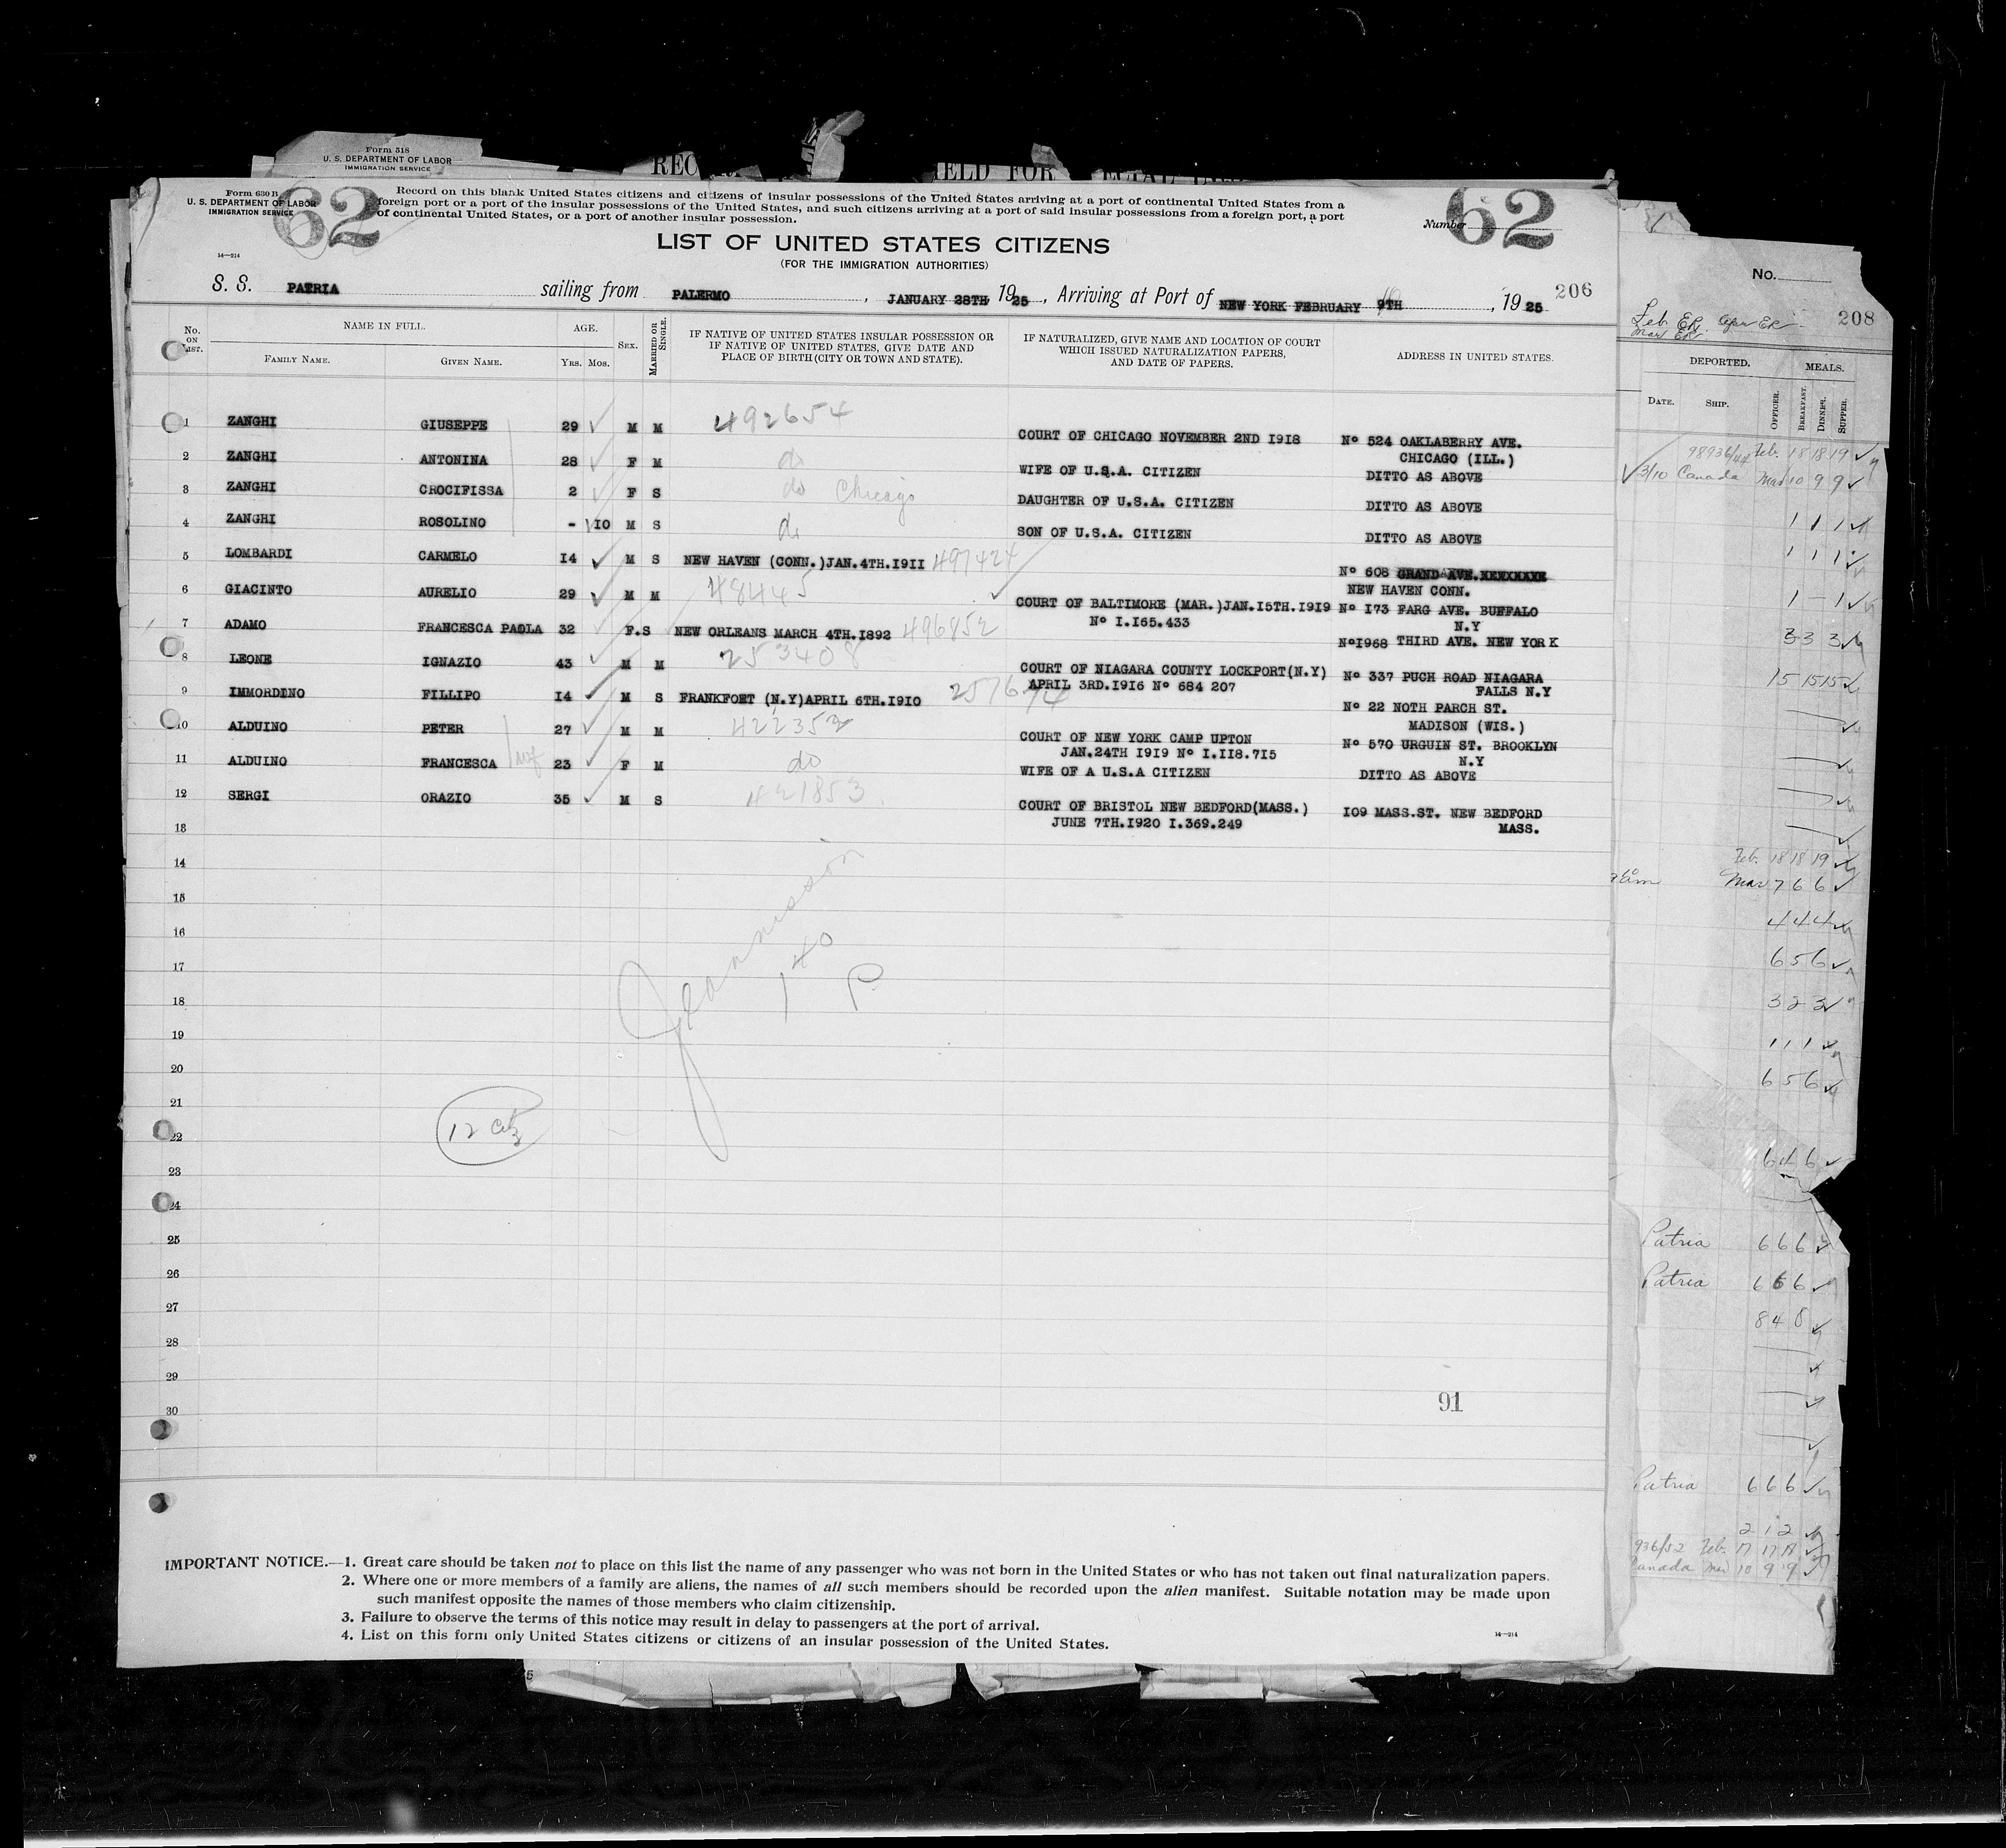 Form 518
U. S. DEPARTMENT OF LABOR
IMMIGRATION SERVICE
Form 630 B
U. S. DEPARTMENT OF LABOR
IMMIGRATION SERVICE
62
Record on this blank United States citizens and citizens of insular possessions of the United States arriving at a port of continental United States from a
foreign port or a port of the insular possessions of the United States, and such citizens arriving at a port of said insular possessions from a foreign port, a port
of continental United States, or a port of another insular possession.
Number 62
14—214
LIST OF UNITED STATES CITIZENS
(FOR THE IMMIGRATION AUTHORITIES)
S. S. PATRIA sailing from PALERMO, JANUARY 28TH, 1925, Arriving at Port of NEW YORK FEBRUARY 9TH, 1925
206
No. ON LIST.
NAME IN FULL.
FAMILY NAME.
GIVEN NAME.
AGE.
YRS. MOS.
SEX.
MARRIED OR SINGLE.
IF NATIVE OF UNITED STATES INSULAR POSSESSION OR
IF NATIVE OF UNITED STATES, GIVE DATE AND
PLACE OF BIRTH (CITY OR TOWN AND STATE).
IF NATURALIZED, GIVE NAME AND LOCATION OF COURT
WHICH ISSUED NATURALIZATION PAPERS,
AND DATE OF PAPERS.
ADDRESS IN UNITED STATES.
1 ZANGHI GIUSEPPE 29 M M 492654 COURT OF CHICAGO NOVEMBER 2ND I9I8 Nº 524 OAKLABERRY AVE.
CHICAGO (ILL.)
2 ZANGHI ANTONINA 28 F M do WIFE OF U.S.A. CITIZEN DITTO AS ABOVE
3 ZANGHI CROCIFISSA 2 F S do Chicago DAUGHTER OF U.S.A. CITIZEN DITTO AS ABOVE
4 ZANGHI ROSOLINO - IO M S do SON OF U.S.A. CITIZEN DITTO AS ABOVE
5 LOMBARDI CARMELO I4 M S NEW HAVEN (CONN.)JAN.4TH.I9II 497424 Nº 608 GRAND AVE.
NEW HAVEN CONN.
6 GIACINTO AURELIO 29 M M 48445 COURT OF BALTIMORE (MAR.)JAN.I5TH.I9I9 Nº I73 FARG AVE. BUFFALO
Nº I.I65.433 N.Y
7 ADAMO FRANCESCA PAOLA 32 F.S NEW ORLEANS MARCH 4TH.I892 496852 NºI968 THIRD AVE. NEW YORK
8 LEONE IGNAZIO 43 M M 253408 COURT OF NIAGARA COUNTY LOCKPORT(N.Y) Nº 337 PUCH ROAD NIAGARA
APRIL 3RD.I9I6 Nº 684 207 FALLS N.Y
9 IMMORDINO FILLIPO I4 M S FRANKFOET (N.Y)APRIL 6TH.I9IO 257674 Nº 22 NOTH PARCH ST.
MADISON (WIS.)
10 ALDUINO PETER 27 M M 422352 COURT OF NEW YORK CAMP UPTON Nº 570 URGUIN ST. BROOKLYN
JAN.24TH I9I9 Nº I.II8.7I5 N.Y
11 ALDUINO FRANCESCA wf 23 F M do WIFE OF A U.S.A CITIZEN DITTO AS ABOVE
12 SERGI ORAZIO 35 M S 421853 COURT OF BRISTOL NEW BEDFORD(MASS.) IO9 MASS.ST. NEW BEDFORD
JUNE 7TH.I920 I.369.249 MASS.
13
14
15
16
17
18
19
20
21
22
23
24
25
26
27
28
29
30
140
P
91
IMPORTANT NOTICE.—1. Great care should be taken not to place on this list the name of any passenger who was not born in the United States or who has not taken out final naturalization papers.
2. Where one or more members of a family are aliens, the names of all such members should be recorded upon the alien manifest. Suitable notation may be made upon
such manifest opposite the names of those members who claim citizenship.
3. Failure to observe the terms of this notice may result in delay to passengers at the port of arrival.
4. List on this form only United States citizens or citizens of an insular possession of the United States.
14—214
No.
208
DEPORTED.
MEALS.
DATE.
SHIP.
OFFICER.
BREAKFAST.
DINNER.
SUPPER.
98936/44 Feb. 18 18 19
3/10 Canada Mar 10 9 9
1 1 1
1 1 1
1 - 1
3 3 3
15 15 15
Feb. 18 18 19
Mar 7 6 6
4 4 4
6 5 6
3 2 3
1 1 1
6 5 6
6 4 6
Patria 6 6 6
Patria 6 6 6
8 4 8
Patria 6 6 6
2 1 2
936/52 Feb. 17 17 18
Canada Mar 10 9 9